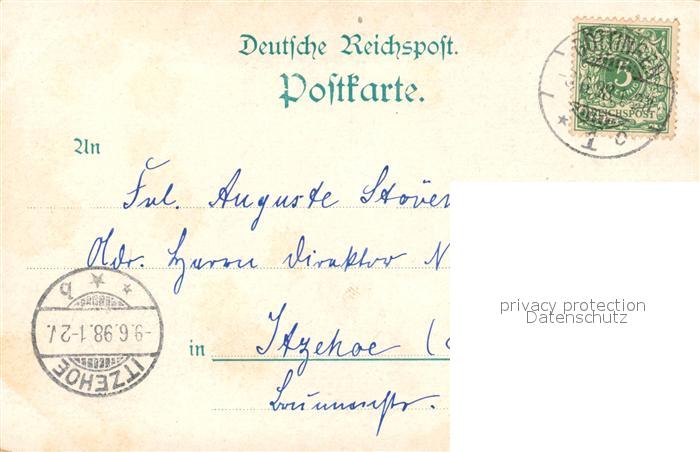 Deutsche Reichspost.
Postkarte.
GÖTTINGEN
5
REICHSPOST
An
Frl. Auguste Stöve
Adr. Herrn Direktor N
privacy protection
Datenschutz
in Itzehoe (
ITZEHOE
-9.6.98.1-2N.
* * b